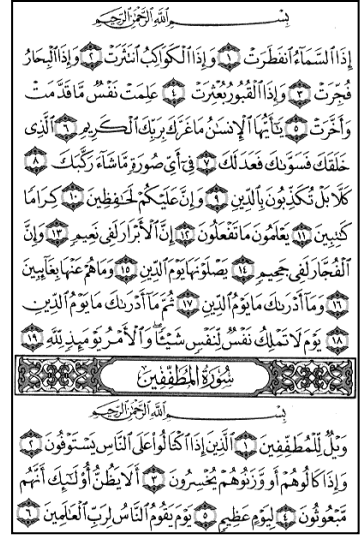 بِسْمِ ٱللَّهِ ٱلرَّحْمَٰنِ ٱلرَّحِيمِ
إِذَا ٱلسَّمَآءُ ٱنفَطَرَتْ ١ وَإِذَا ٱلْكَوَاكِبُ ٱنتَثَرَتْ ٢ وَإِذَا ٱلْبِحَارُ
فُجِّرَتْ ٣ وَإِذَا ٱلْقُبُورُ بُعْثِرَتْ ٤ عَلِمَتْ نَفْسٌ مَّا قَدَّمَتْ
وَأَخَّرَتْ ٥ يَٰٓأَيُّهَا ٱلْإِنسَٰنُ مَا غَرَّكَ بِرَبِّكَ ٱلْكَرِيمِ ٦ ٱلَّذِى
خَلَقَكَ فَسَوَّىٰكَ فَعَدَلَكَ ٧ فِىٓ أَىِّ صُورَةٍ مَّا شَآءَ رَكَّبَكَ ٨
كَلَّا بَلْ تُكَذِّبُونَ بِٱلدِّينِ ٩ وَإِنَّ عَلَيْكُمْ لَحَٰفِظِينَ ١٠ كِرَامًا
كَٰتِبِينَ ١١ يَعْلَمُونَ مَا تَفْعَلُونَ ١٢ إِنَّ ٱلْأَبْرَارَ لَفِى نَعِيمٍ ١٣ وَإِنَّ
ٱلْفُجَّارَ لَفِى جَحِيمٍ ١٤ يَصْلَوْنَهَا يَوْمَ ٱلدِّينِ ١٥ وَمَا هُمْ عَنْهَا بِغَآئِبِينَ
١٦ وَمَآ أَدْرَىٰكَ مَا يَوْمُ ٱلدِّينِ ١٧ ثُمَّ مَآ أَدْرَىٰكَ مَا يَوْمُ ٱلدِّينِ
١٨ يَوْمَ لَا تَمْلِكُ نَفْسٌ لِّنَفْسٍ شَيْـًٔا ۖ وَٱلْأَمْرُ يَوْمَئِذٍ لِّلَّهِ ١٩
سُورَةُ ٱلْمُطَفِّفِينَ
بِسْمِ ٱللَّهِ ٱلرَّحْمَٰنِ ٱلرَّحِيمِ
وَيْلٌ لِّلْمُطَفِّفِينَ ١ ٱلَّذِينَ إِذَا ٱكْتَالُوا۟ عَلَى ٱلنَّاسِ يَسْتَوْفُونَ ٢
وَإِذَا كَالُوهُمْ أَو وَّزَنُوهُمْ يُخْسِرُونَ ٣ أَلَا يَظُنُّ أُو۟لَٰٓئِكَ أَنَّهُم
مَّبْعُوثُونَ ٤ لِيَوْمٍ عَظِيمٍ ٥ يَوْمَ يَقُومُ ٱلنَّاسُ لِرَبِّ ٱلْعَٰلَمِينَ ٦